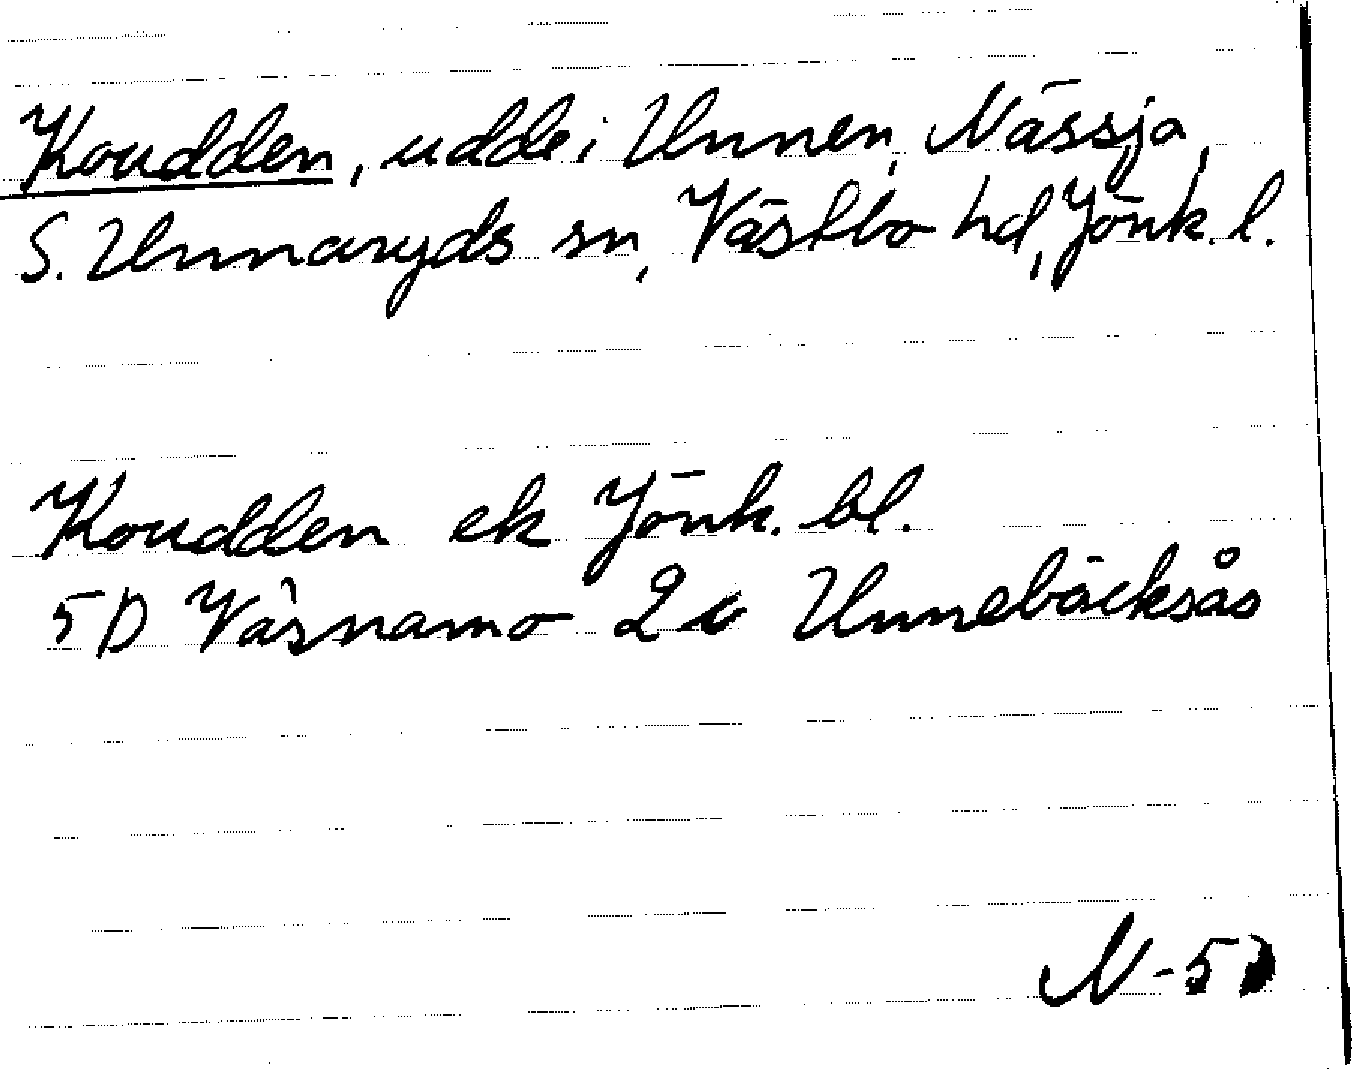 Koudden, udde i Unnen, Nässja,
S. Unnaryds sn, Västbo hd, Jönk. l.
Koudden ek Jönk. bl.
5D Värnamo 2 c Unnebäcksås
N-5D